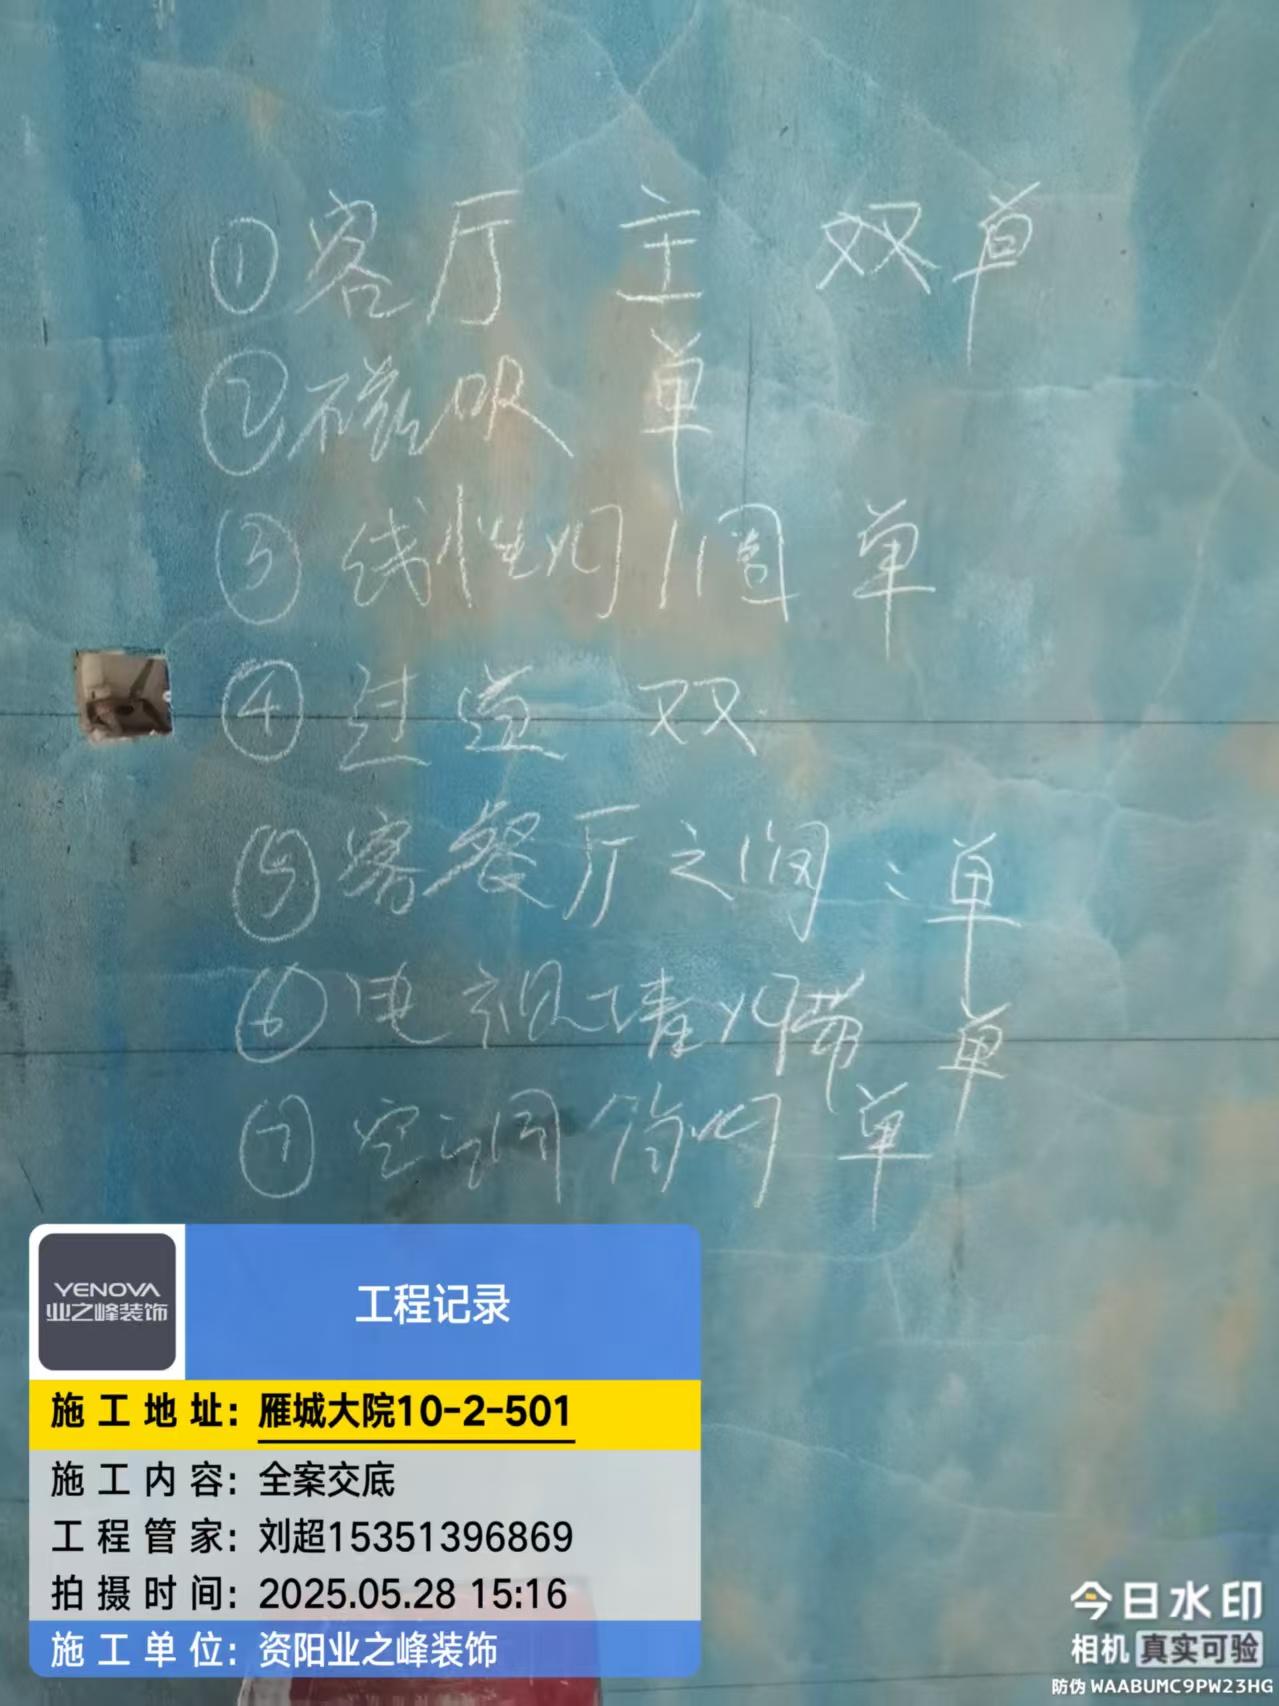 ①客厅 主 双单
②磁吸 单
③线性灯1圈 单
④过道 双
⑤客餐厅之间 单
⑥电视墙灯带 单
⑦空调 灯 单
YENOVA
业之峰装饰
工程记录
施工地址：雁城大院10-2-501
施工内容：全案交底
工程管家：刘超15351396869
拍摄时间：2025.05.28 15:16
施工单位：资阳业之峰装饰
今日水印
相机 真实可验
防伪 WAABUMC9PW23HG